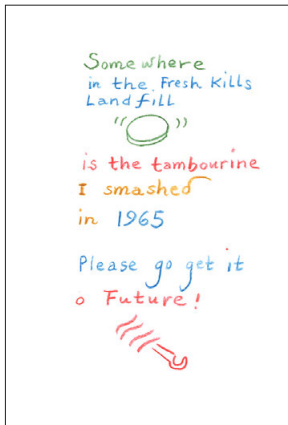 Somewhere
in the Fresh Kills
Landfill
is the tambourine
I smashed
in 1965
Please go get it
o Future!